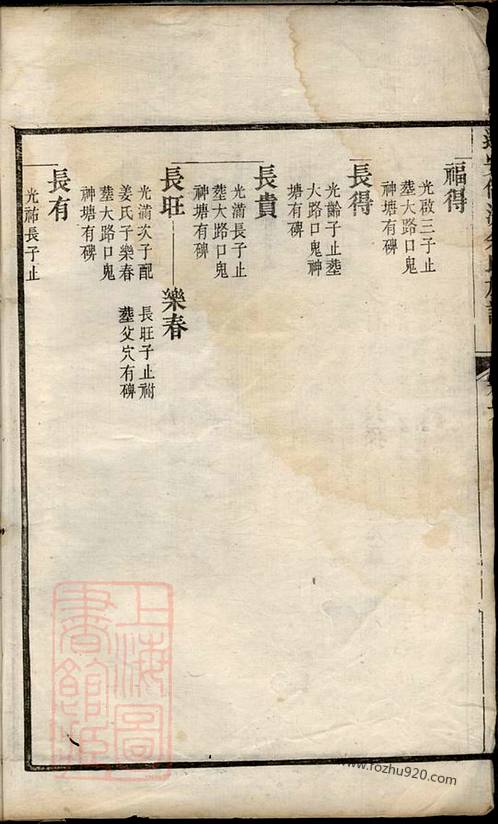 福得
光啟三子止
塟大路口鬼
神塘有碑
長得
光齡子止塟
大路口鬼神
塘有碑
長貴
光滿長子止
塟大路口鬼
神塘有碑
長旺
樂春
光滿次子配
姜氏子樂春
塟大路口鬼
神塘有碑
長旺子止祔
塟父穴有碑
長有
光祐長子止
上海圖
書館藏
www.fozhu920.com